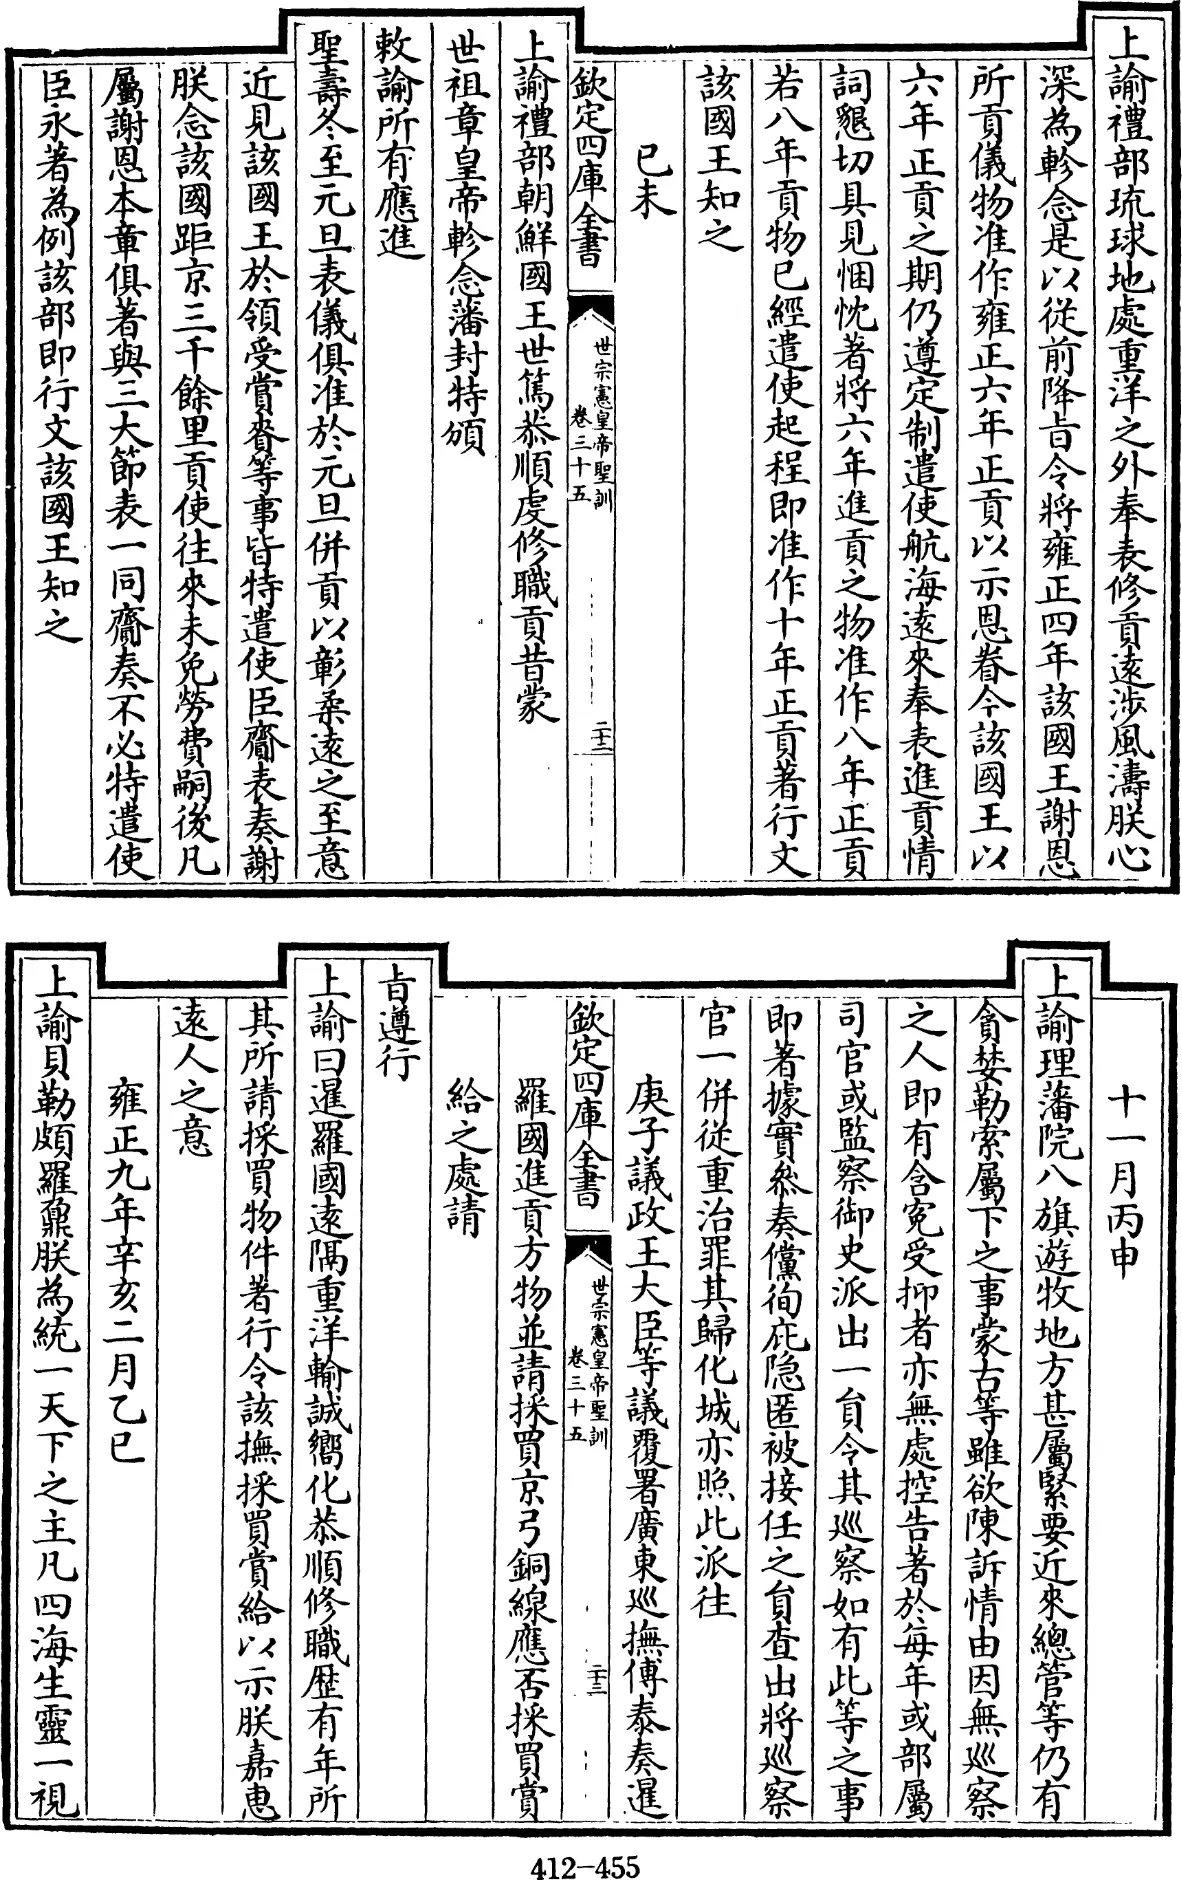 上諭禮部琉球地處重洋之外奉表修貢遠涉風濤朕心
深為軫念是以從前降旨令將雍正四年該國王謝恩
所貢儀物准作雍正六年正貢以示恩眷今該國王以
六年正貢之期仍遵定制遣使航海遠來奉表進貢情
詞懇切具見悃忱著將六年進貢之物准作八年正貢
若八年貢物已經遣使起程即准作十年正貢著行文
該國王知之
已未
欽定四庫全書
世宗憲皇帝聖訓
卷三十五
二十二
上諭禮部朝鮮國王世篤恭順虔修職貢昔蒙
世祖章皇帝軫念藩封特頒
敕諭所有應進
聖壽冬至元旦表儀俱准於元旦併貢以彰柔遠之至意
近見該國王於領受賞賚等事皆特遣使臣齎表奏謝
朕念該國距京三千餘里貢使往來未免勞費嗣後凡
屬謝恩本章俱著與三大節表一同齎奏不必特遣使
臣永著為例該部即行文該國王知之
十一月丙申
上諭理藩院八旗遊牧地方甚屬緊要近來總管等仍有
貪婪勒索屬下之事蒙古等雖欲陳訴情由因無巡察
之人即有含冤受抑者亦無處控告著於每年或部屬
司官或監察御史派出一員令其巡察如有此等之事
即著據實叅奏儻徇庇隱匿被接任之員查出將巡察
官一併從重治罪其歸化城亦照此派往
庚子議政王大臣等議覆署廣東巡撫傅泰奏暹
欽定四庫全書
世宗憲皇帝聖訓
卷三十五
二十三
羅國進貢方物並請採買京弓銅線應否採買賞
給之處請
旨遵行
上諭曰暹羅國遠隔重洋輸誠嚮化恭順修職歷有年所
其所請採買物件著行令該撫採買賞給以示朕嘉惠
遠人之意
雍正九年辛亥二月乙巳
上諭貝勒頗羅鼐朕為統一天下之主凡四海生靈一視
412-455